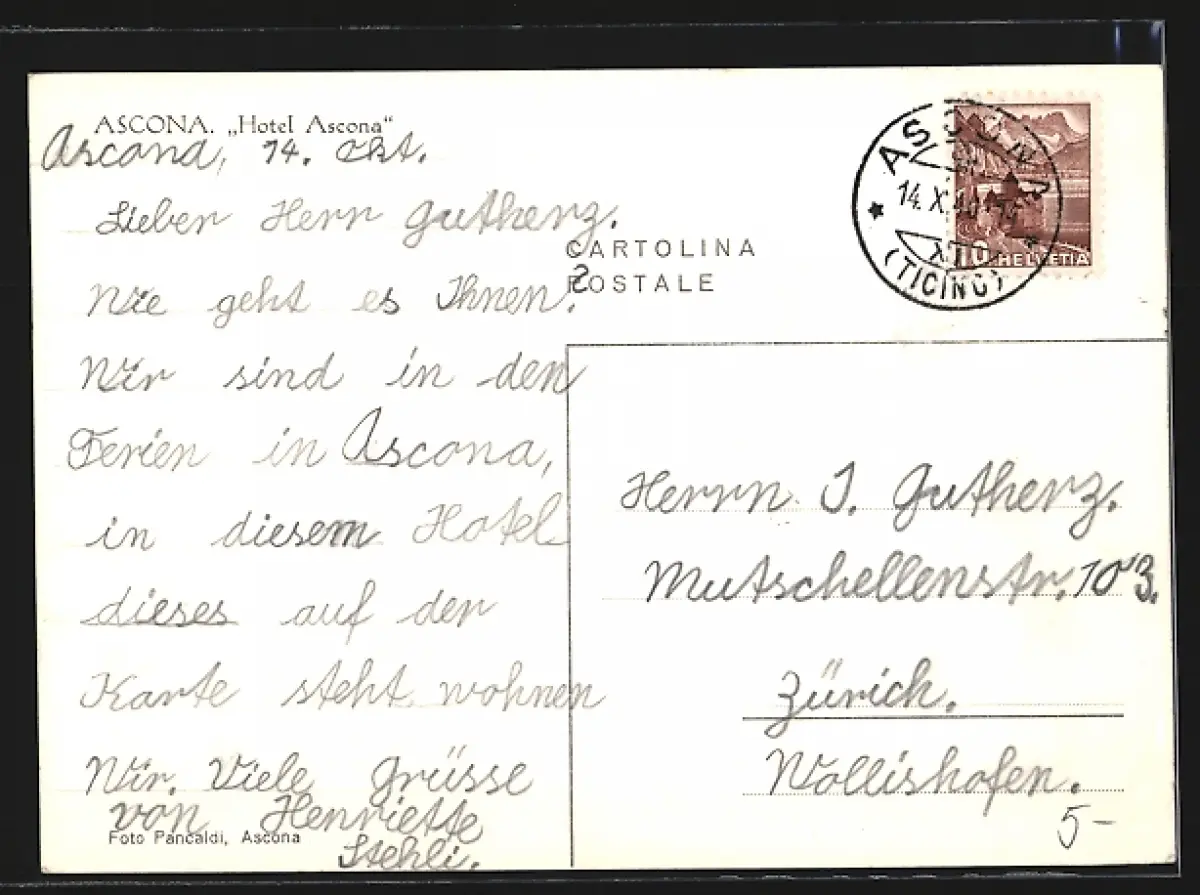 ASCONA. „Hotel Ascona"
Ascona, 14. Okt.
Lieber Herr Gutherz.
Wie geht es Ihnen?
Wir sind in den
Ferien in Ascona,
in diesem Hotel
dieses auf der
Karte steht wohnen
Wir. Viele Grüsse
von Henriette
Stehli.
Foto Pancaldi, Ascona
CARTOLINA
POSTALE
ASCONA
14.X.40
(TICINO)
10 HELVETIA
Herrn J. Gutherz.
Mutschellenstr. 103.
Zürich.
Wollishofen.
5-